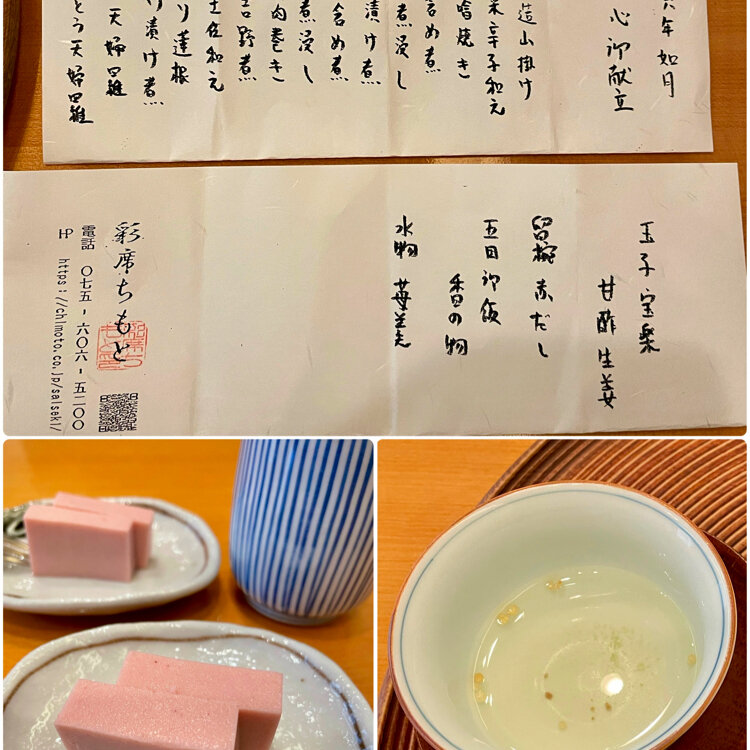 年如月
心御献立
造山掛け
菜辛子和え
噌焼き
含め煮
煮浸し
漬け煮
含め煮
煮浸し
肉巻き
吉野煮
土佐和え
り蓮根
け漬け煮
天婦羅
とう天婦羅
玉子宝楽
甘酢生姜
留椀 赤だし
五目御飯
香の物
水物 苺羹
彩席ちもと
電話 〇七五-六〇六-五二〇〇
HP https://chimoto.co.jp/saiseki/